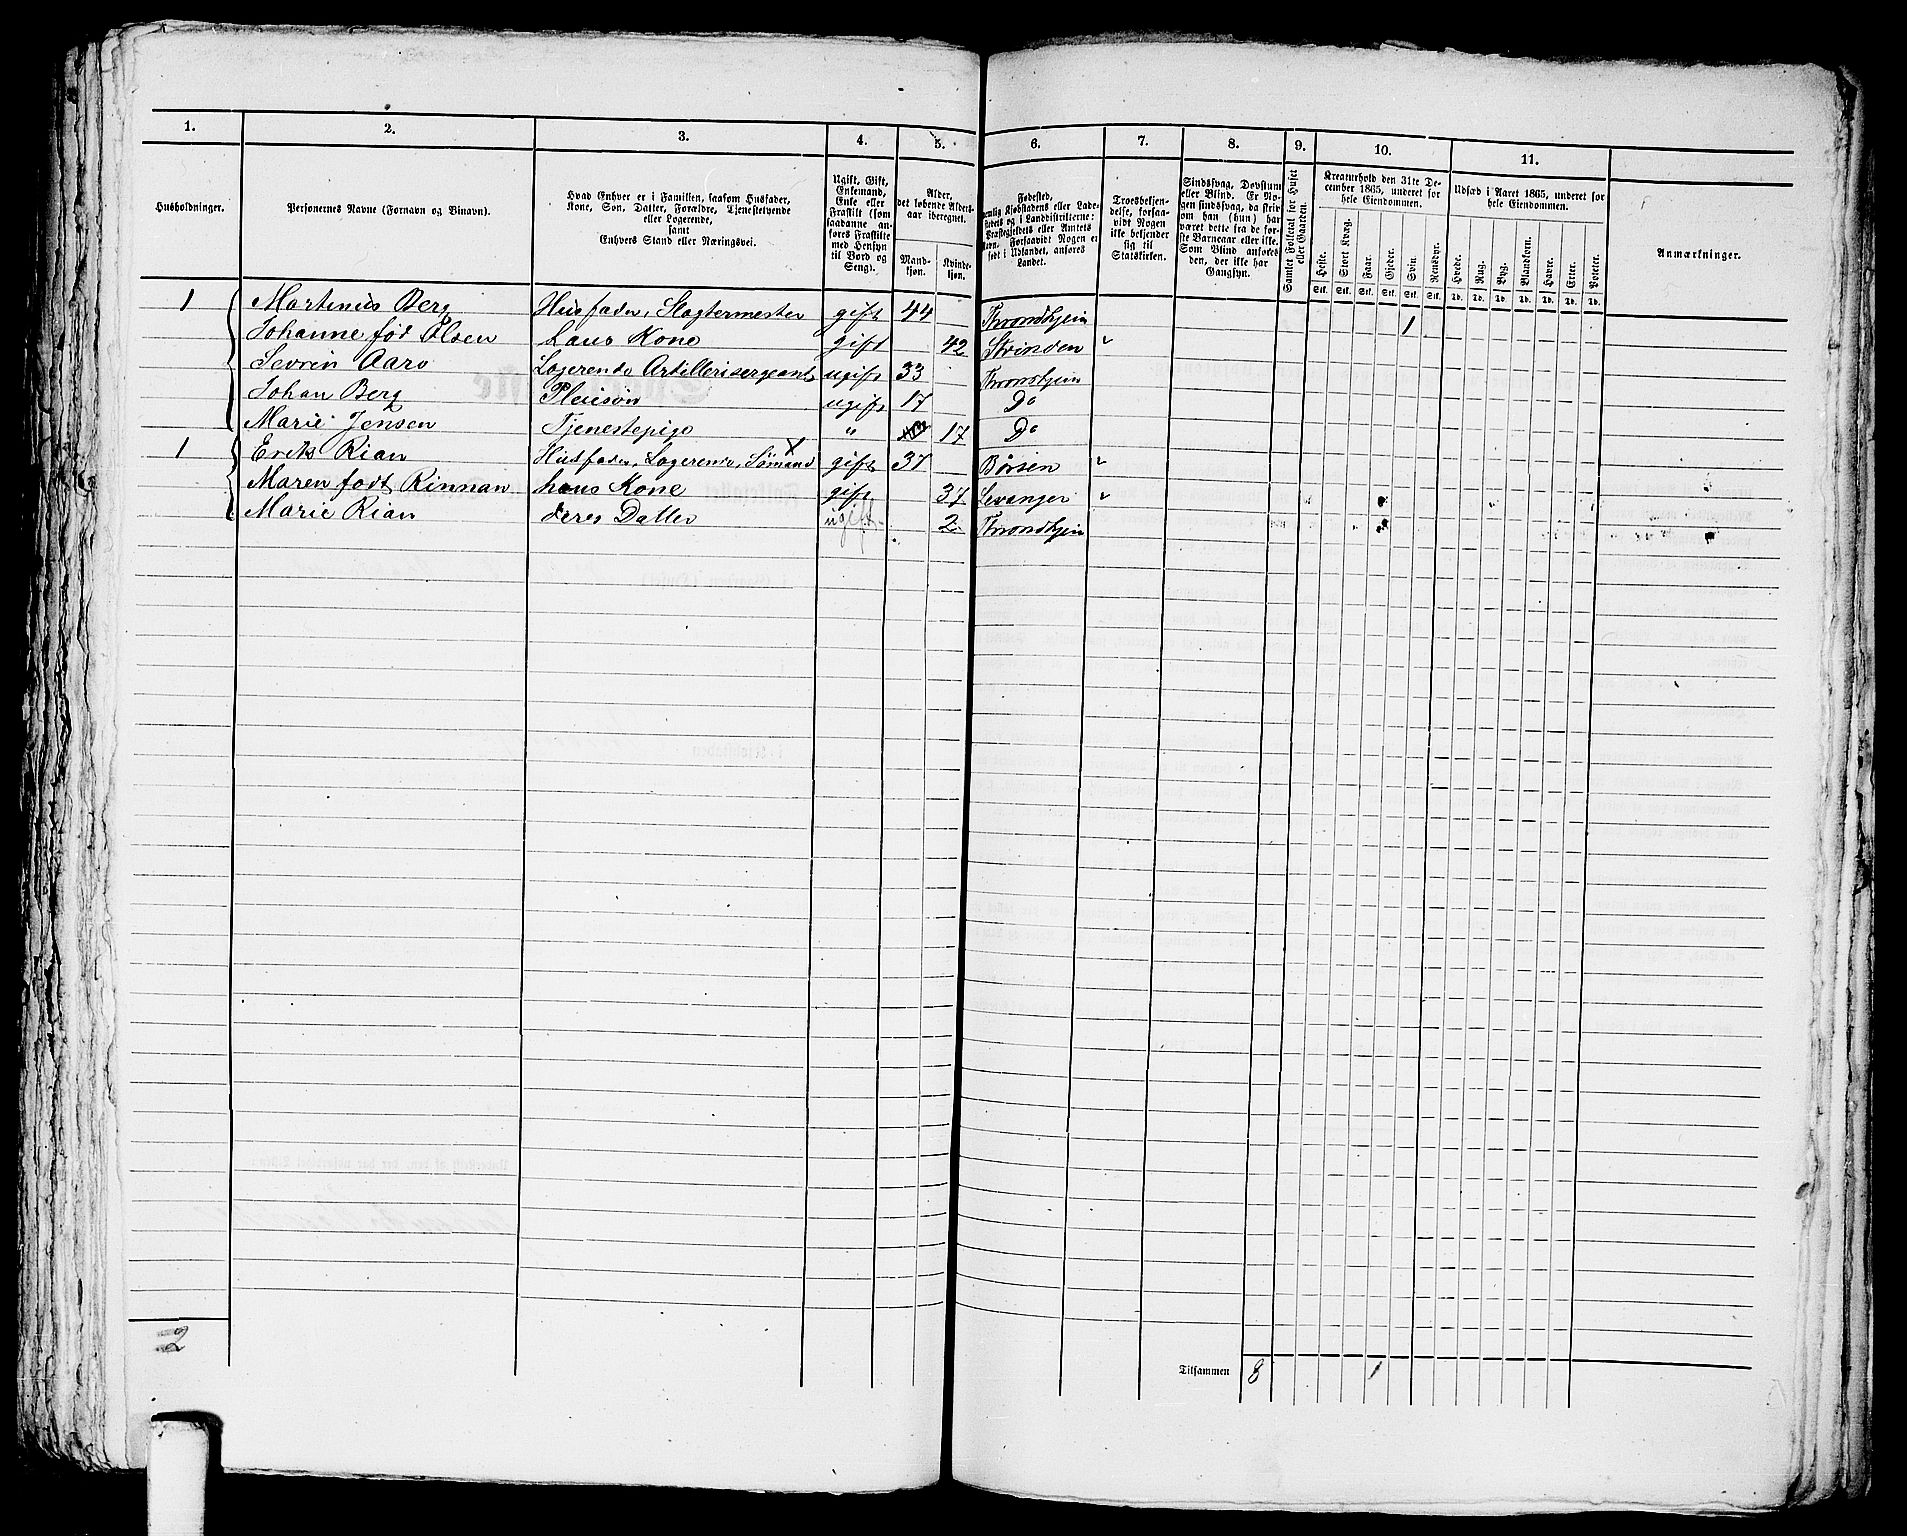 1. 2. 3. 4. 5. 6. 7. 8. 9. 10. 11.
Husholdninger.
Personernes Navne (Fornavn og Vinavn).
Hvad Enhver er i Familien, saasom Husfader,
Kone, Søn, Datter, Forældre, Tjenestetyende
eller Logerende,
samt
Enhvers Stand eller Næringsvei.
Ugift, Gift,
Enkemand,
Enke eller
Fraskilt (som
saadanne an-
føres Fraskilte
med Hensyn
til Bord og
Seng).
Alder,
det løbende Alders-
aar iberegnet.
Mand-
kjøn.
Kvinde-
kjøn.
Fødested,
nemlig Kjøbstadens eller Lade-
stedets og i Landdistrikterne:
Præstegjeldets eller Amtets
Navn. Forsaavidt Nogen er
født i Udlandet, anføres
Landet.
Troesbekjen-
delse, forsaa-
vidt Nogen
ikke bekjender
sig til
Statskirken.
Sindssvag, Døvstum
eller Blind. Er No-
gen sindssvag, da skriv
om han (hun) har
været dette fra de før-
ste Barneaar eller ikke.
Som Blind anføres
den, der ikke har
Gangsyn.
Samlet Folketal for Huset
eller Gaarden.
Kreaturhold den 31te De-
cember 1865, underet for
hele Eiendommen.
Heste. Stort Kvæg. Faar. Gjeder. Svin. Rensdyr.
Stk. Stk. Stk. Stk. Stk. Stk.
Udsæd i Aaret 1865, underet for
hele Eiendommen.
Hvede. Rug. Byg. Blandkorn. Havre. Erter. Poteter.
Td. Td. Td. Td. Td. Td. Td.
Anmærkninger.
1 Martinus Berg Husfader, Slagtermester gift 44 Throndhjem 1
Johanne fød Olsen hans Kone gift 42 Strinden "
Sevrin Aaro Logerende Artillerisergeant ugift 33 Throndhjem
Johan Berg Pleiesøn ugift 17 Do
Marie Jensen Tjenestepige " 17 Do
1 Erik Rian Husfader, Logerende, Sømand gift 37 Børsen "
Maren født Rinnan hans Kone gift 37 Levanger "
Marie Rian deres Datter ugift 2 Throndhjem
2
Tilsammen 8 1